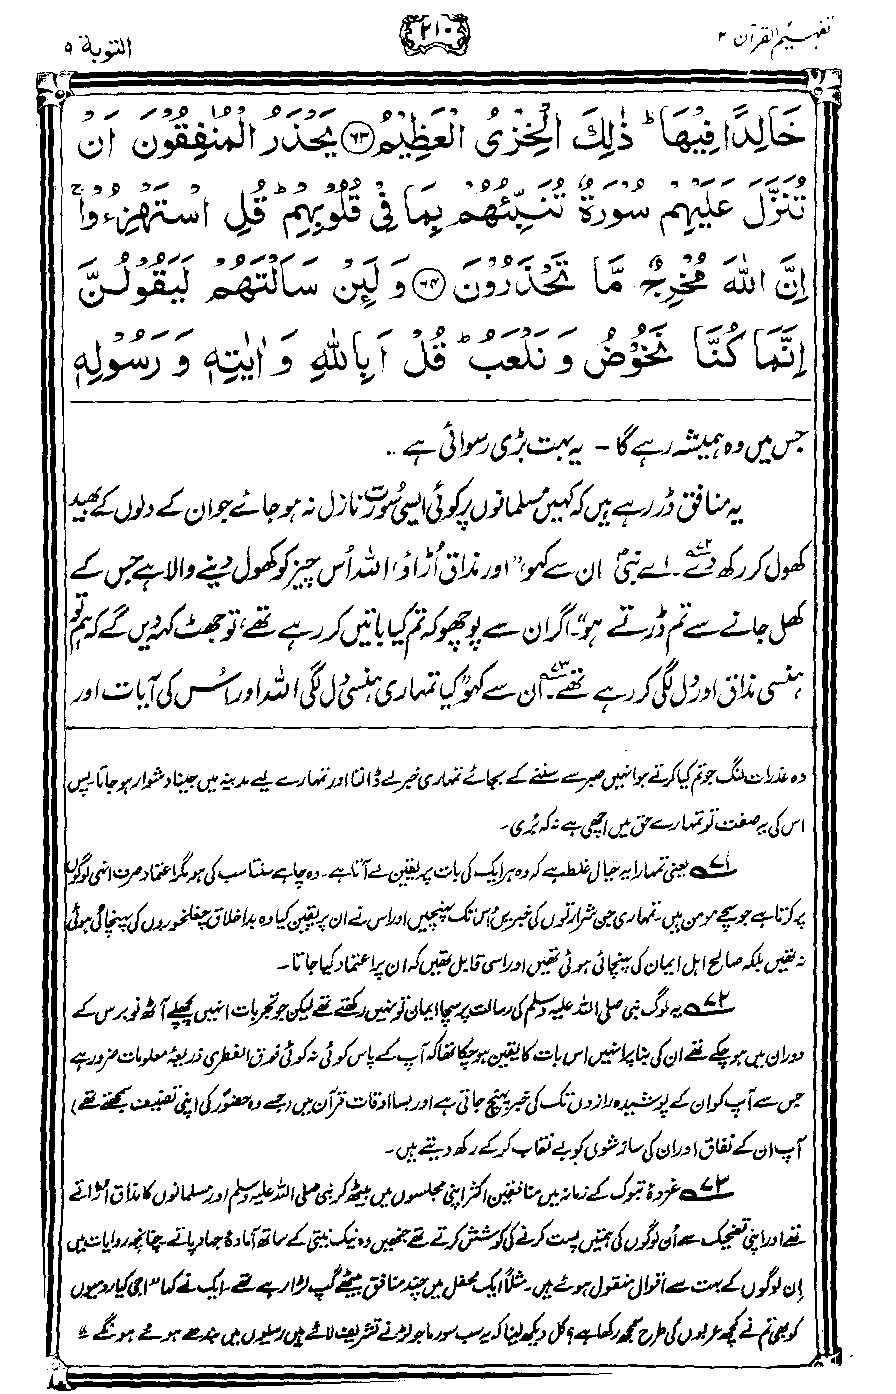 تفہیم القرآن ۲
۲۱۰
التوبة ۹
خَالِدًا فِيْهَا ؕ ذٰلِكَ الْخِزْىُ الْعَظِيْمُ ﴿۶۳﴾ يَحْذَرُ الْمُنٰفِقُوْنَ اَنْ
تُنَزَّلَ عَلَيْهِمْ سُوْرَةٌ تُنَبِّئُهُمْ بِمَا فِىْ قُلُوْبِهِمْ ؕ قُلِ اسْتَهْزِءُوْا ۚ
اِنَّ اللّٰهَ مُخْرِجٌ مَّا تَحْذَرُوْنَ ﴿۶۴﴾ وَ لَئِنْ سَاَلْتَهُمْ لَيَقُوْلُنَّ
اِنَّمَا كُنَّا نَخُوْضُ وَ نَلْعَبُ ؕ قُلْ اَبِاللّٰهِ وَ اٰيٰتِهٖ وَ رَسُوْلِهٖ
جس میں وہ ہمیشہ رہے گا۔ یہ بہت بڑی رسوائی ہے۔
یہ منافق ڈر رہے ہیں کہ کہیں مسلمانوں پر کوئی ایسی سُورت نازل نہ ہو جائے جو ان کے دلوں کے بھید
کھول کر رکھ دے۷۲۔ اے نبیؐ ان سے کہو، ”اور مذاق اُڑاؤ، اللہ اُس چیز کو کھول دینے والا ہے جس کے
کھل جانے سے تم ڈرتے ہو“۔ اگر ان سے پوچھو کہ تم کیا باتیں کر رہے تھے، تو جھٹ کہہ دیں گے کہ ہم تو
ہنسی مذاق اور دل لگی کر رہے تھے۷۳۔ اُن سے کہو، ”کیا تمہاری ہنسی دل لگی اللہ اور اُس کی آیات اور
وہ عذرات لنگ جو تم کیا کرتے ہو انہیں صبر سے سننے کے بجائے تمہاری خبر لے ڈالتا اور تمہارے لیے مدینہ میں جینا دشوار ہو جاتا۔ پس
اس کی یہ صفت تو تمہارے حق میں اچھی ہے نہ کہ بُری۔
۷۱ یعنی تمہارا یہ خیال غلط ہے کہ وہ ہر ایک کی بات پر یقین لے آتا ہے۔ وہ چاہے سنتا سب کی ہو مگر اعتماد صرف انہی لوگوں
پر کرتا ہے جو سچے مومن ہیں۔ تمہاری جن شرارتوں کی خبریں اُس تک پہنچیں اور اس نے ان پر یقین کیا وہ بد اخلاق چغلخوروں کی پہنچائی ہوئی
نہ تھیں بلکہ صالح اہل ایمان کی پہنچائی ہوئی تھیں اور اسی قابل تھیں کہ ان پر اعتماد کیا جاتا۔
۷۲ یہ لوگ نبی صلی اللہ علیہ وسلم کی رسالت پر سچا ایمان تو نہیں رکھتے تھے لیکن جو تجربات انہیں پچھلے آٹھ نو برس کے
دوران میں ہو چکے تھے ان کی بنا پر انہیں اس بات کا یقین ہو چکا تھا کہ آپ کے پاس کوئی نہ کوئی فوق الفطری ذریعۂ معلومات ضرور ہے
جس سے آپ کو ان کے پوشیدہ رازوں تک کی خبر پہنچ جاتی ہے اور بسا اوقات قرآن میں (جسے وہ حضورؐ کی اپنی تصنیف سمجھتے تھے)
آپ ان کے نفاق اور ان کی سازشوں کو بے نقاب کر کے رکھ دیتے ہیں۔
۷۳ غزوۂ تبوک کے زمانہ میں منافقین اکثر اپنی مجلسوں میں بیٹھ کر نبی صلی اللہ علیہ وسلم اور مسلمانوں کا مذاق اڑاتے
تھے اور اپنی تضحیک سے اُن لوگوں کی ہمتیں پست کرنے کی کوشش کرتے تھے جنھیں وہ نیک نیتی کے ساتھ آمادۂ جہاد پاتے۔ چنانچہ روایات میں
اِن لوگوں کے بہت سے اقوال منقول ہوئے ہیں۔ مثلاً ایک محفل میں چند منافق بیٹھے گپ لڑا رہے تھے۔ ایک نے کہا ”اجی کیا رومیوں
کو بھی تم نے کچھ عربوں کی طرح سمجھ رکھا ہے؟ کل دیکھ لینا کہ یہ سب سورما جو لڑنے تشریف لائے ہیں رسیوں میں بندھے ہوئے ہوں گے“